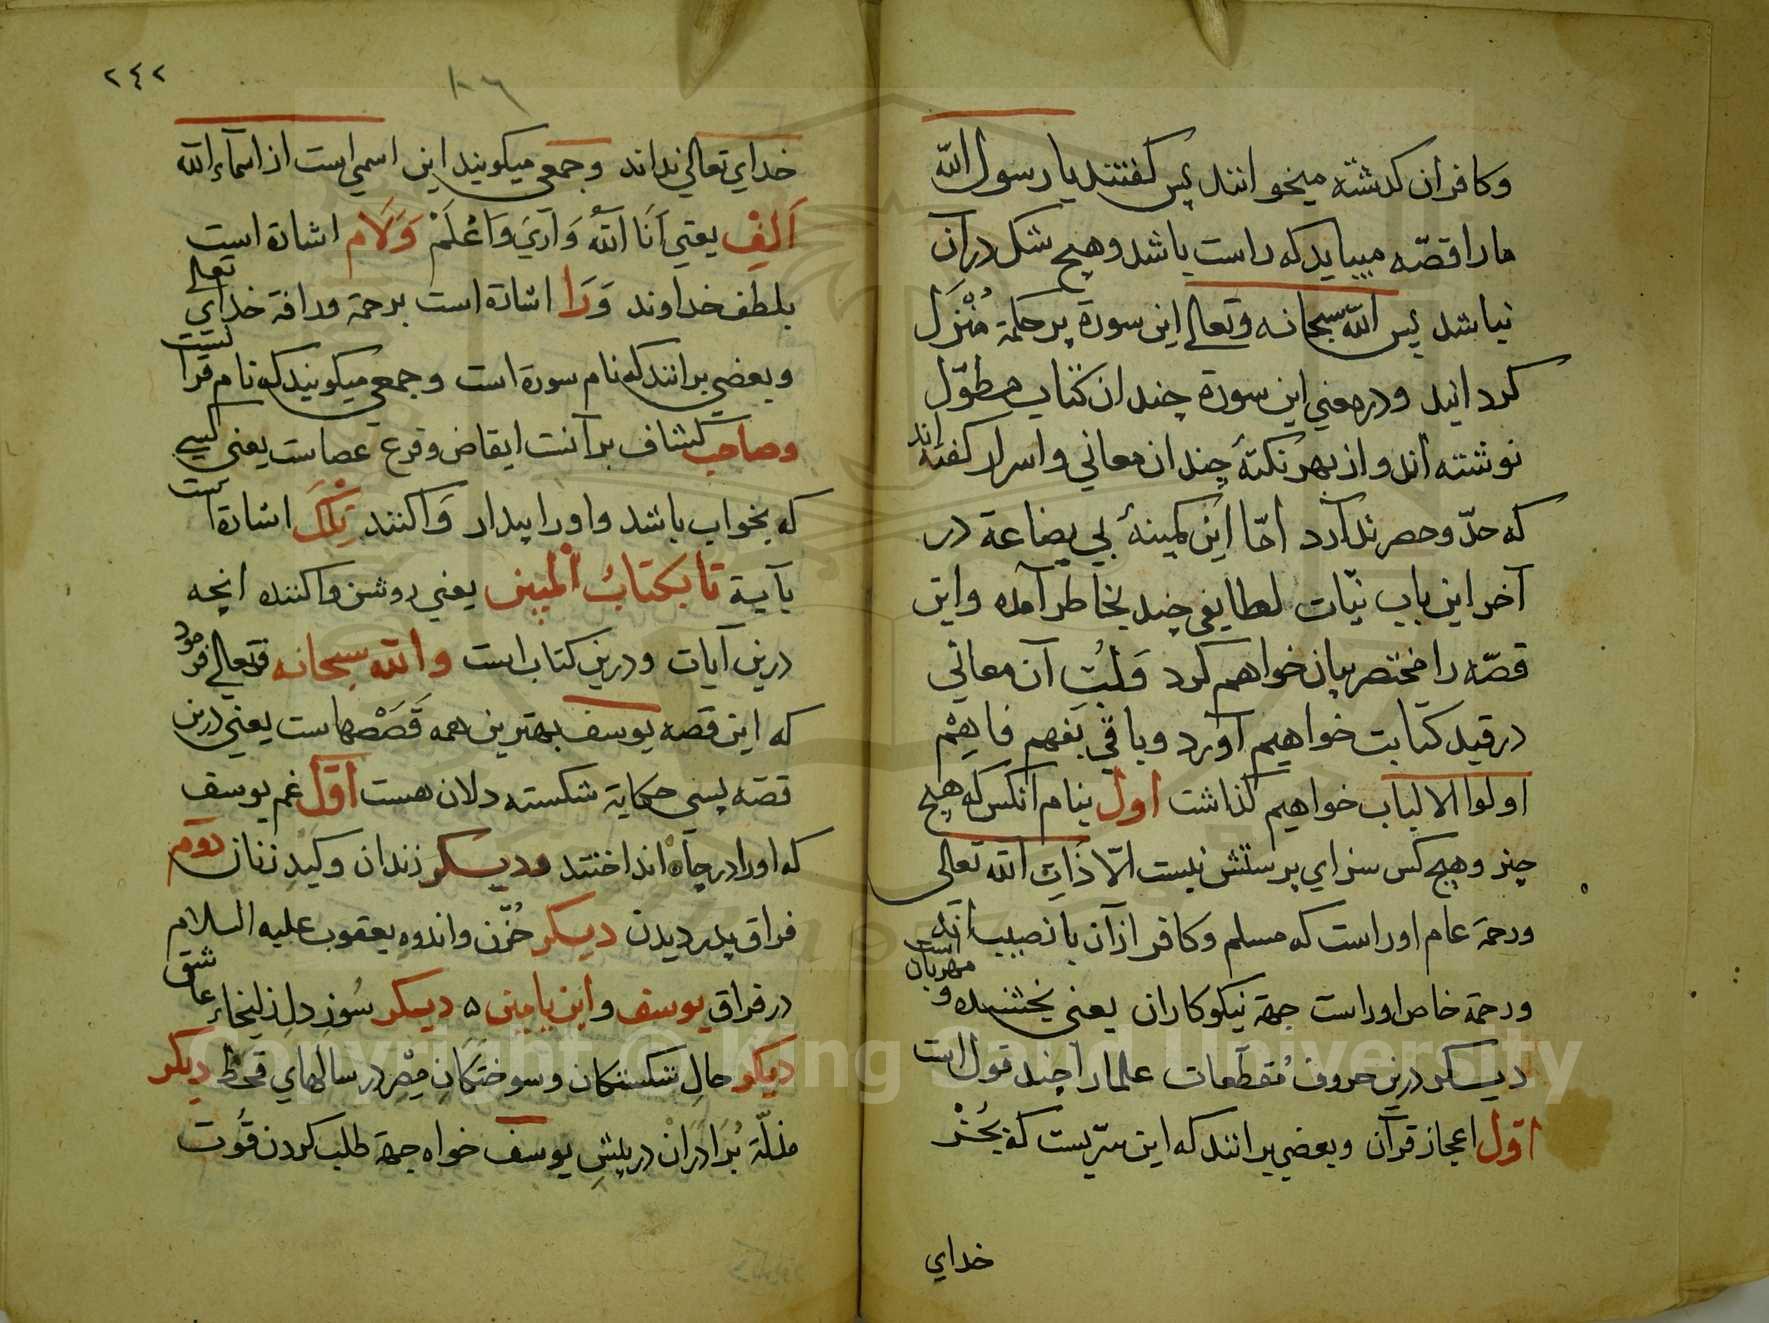 وکافران کدشته میخوانند پس کفتند یا رسول الله
مارا قصّه میباید که راست باشد و هیچ شکل در آن
نباشد پس الله سبحانه وتعالی این سورة پر حکمة مُنْزَل
کردانید ودر معنی این سورة چندان کتاب مطوّل
نوشته اند و از بهر نکتهٔ چندان معانی و اسرار کفته اند
که حدّ و حصر ندارد امّا این کمینهٔ بی بضاعة در
آخر این باب نیّات لطایفی چند بخاطر آمده واین
قصّه را مختصر بیان خواهم کرد وَلُبّ آن معانی
در قید کتابت خواهیم آورد وباقی بفهم فایهم
اولوا الالباب خواهیم کذاشت اول بنام آنکس که هیچ
چیز وهیچ کس سزای پرستش نیست الّا ذات الله تعالی
ورحمة عام اوراست که مسلم وکافر ازآن با نصیب اند
ورحمة خاص اوراست جهة نیکوکاران یعنی بخشنده و مهربان است
دیکر درین حروف مُقطّعات علمارا چند قول است
اوّل اعجاز قرآن وبعضی برانند که این سرّیست که بجُز
خدای
٢٤٢
٨٦
خدای تعالی نداند وجمعی میکویند این اسمی است از اسمآء الله
اَلِف یعنی اَنَا اللّٰهُ وَ اَرَی وَ اَعْلَمْ وَلَام اشارة است
بلطف خداوند وَرَا اشارة است برحمة ورافة خدای تعالی
وبعضی برانند که نام سورة است وجمعی میکویند که نام قرآنست
وصاحب کشاف برآنست ایقاض وقرع عصاست یعنی کسی
که بخواب باشد واورا بیدار واکنند تِلْكَ اشارة است
بآیة تا بکتاب المبین یعنی روشن واکننده انچه
درین آیات ودرین کتاب است والله سبحانه وتعالی فرمود
که این قصه یوسف بهترین همه قَصَصْهاست یعنی درین
قصّه بسی حکایة شکسته دلان هست اوّل غم یوسف
که اورا در چاه انداختند ودیکر زندان وکید زنان دوم
فراق پدر دیدن دیکر حُزن واندوه یعقوب علیه السلام
در فراق یوسف وابن یامین ۵ دیکر سُوز دل زلیخاء عاشق
دیکر حالِ شکستکان وسوختکانِ مِصر در سالهای قحط دیکر
مذلّة بُرَادَران در پیشِ یوسف خواه جهة طلب کردن قُوت
Copyright © King Saud University